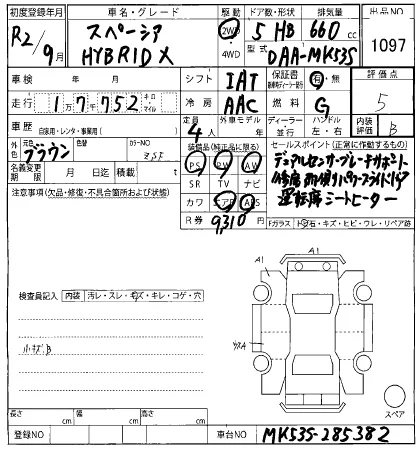 初度登録年月 車名・グレード 駆動 ドア数・形状 排気量 出品NO
R2/9月 スペーシア HYBRID X 2WD 4WD 5 HB 660 cc 1097
型式 DAA-MK53S
車検 年 月 シフト IAT 保証書 有・無 評価点 5
走行 17752 キロ・マイル 冷房 AAC 燃料 G
車歴 自家用・レンタ・事業用( ) 定員 4人 外車モデル 年 ディーラー・並行 ハンドル 左・右 内装評価 B
外色 元色 ブラウン 色替 カラーNO
名義変更期限 月 日迄 積載 t
装備品(純正品に限る)
PS PW AW
SR TV ナビ
カワ エアB ABS
R券 9310 円
セールスポイント(正常に作動するもの)
デュアルセンサーブレーキサポート
修席両側パワースライドドア
運転席シートヒーター
Fガラス トビ石・キズ・ヒビ・ウレ・リペア跡
注意事項(欠品・修復・不具合箇所および状態)
検査員記入 内装 汚レ・スレ・キズ・キレ・コゲ・穴
小キズ.B
A1
A1
A1
スペア
長さ cm 幅 cm 高さ cm
登録NO 車台NO MK53S-285382